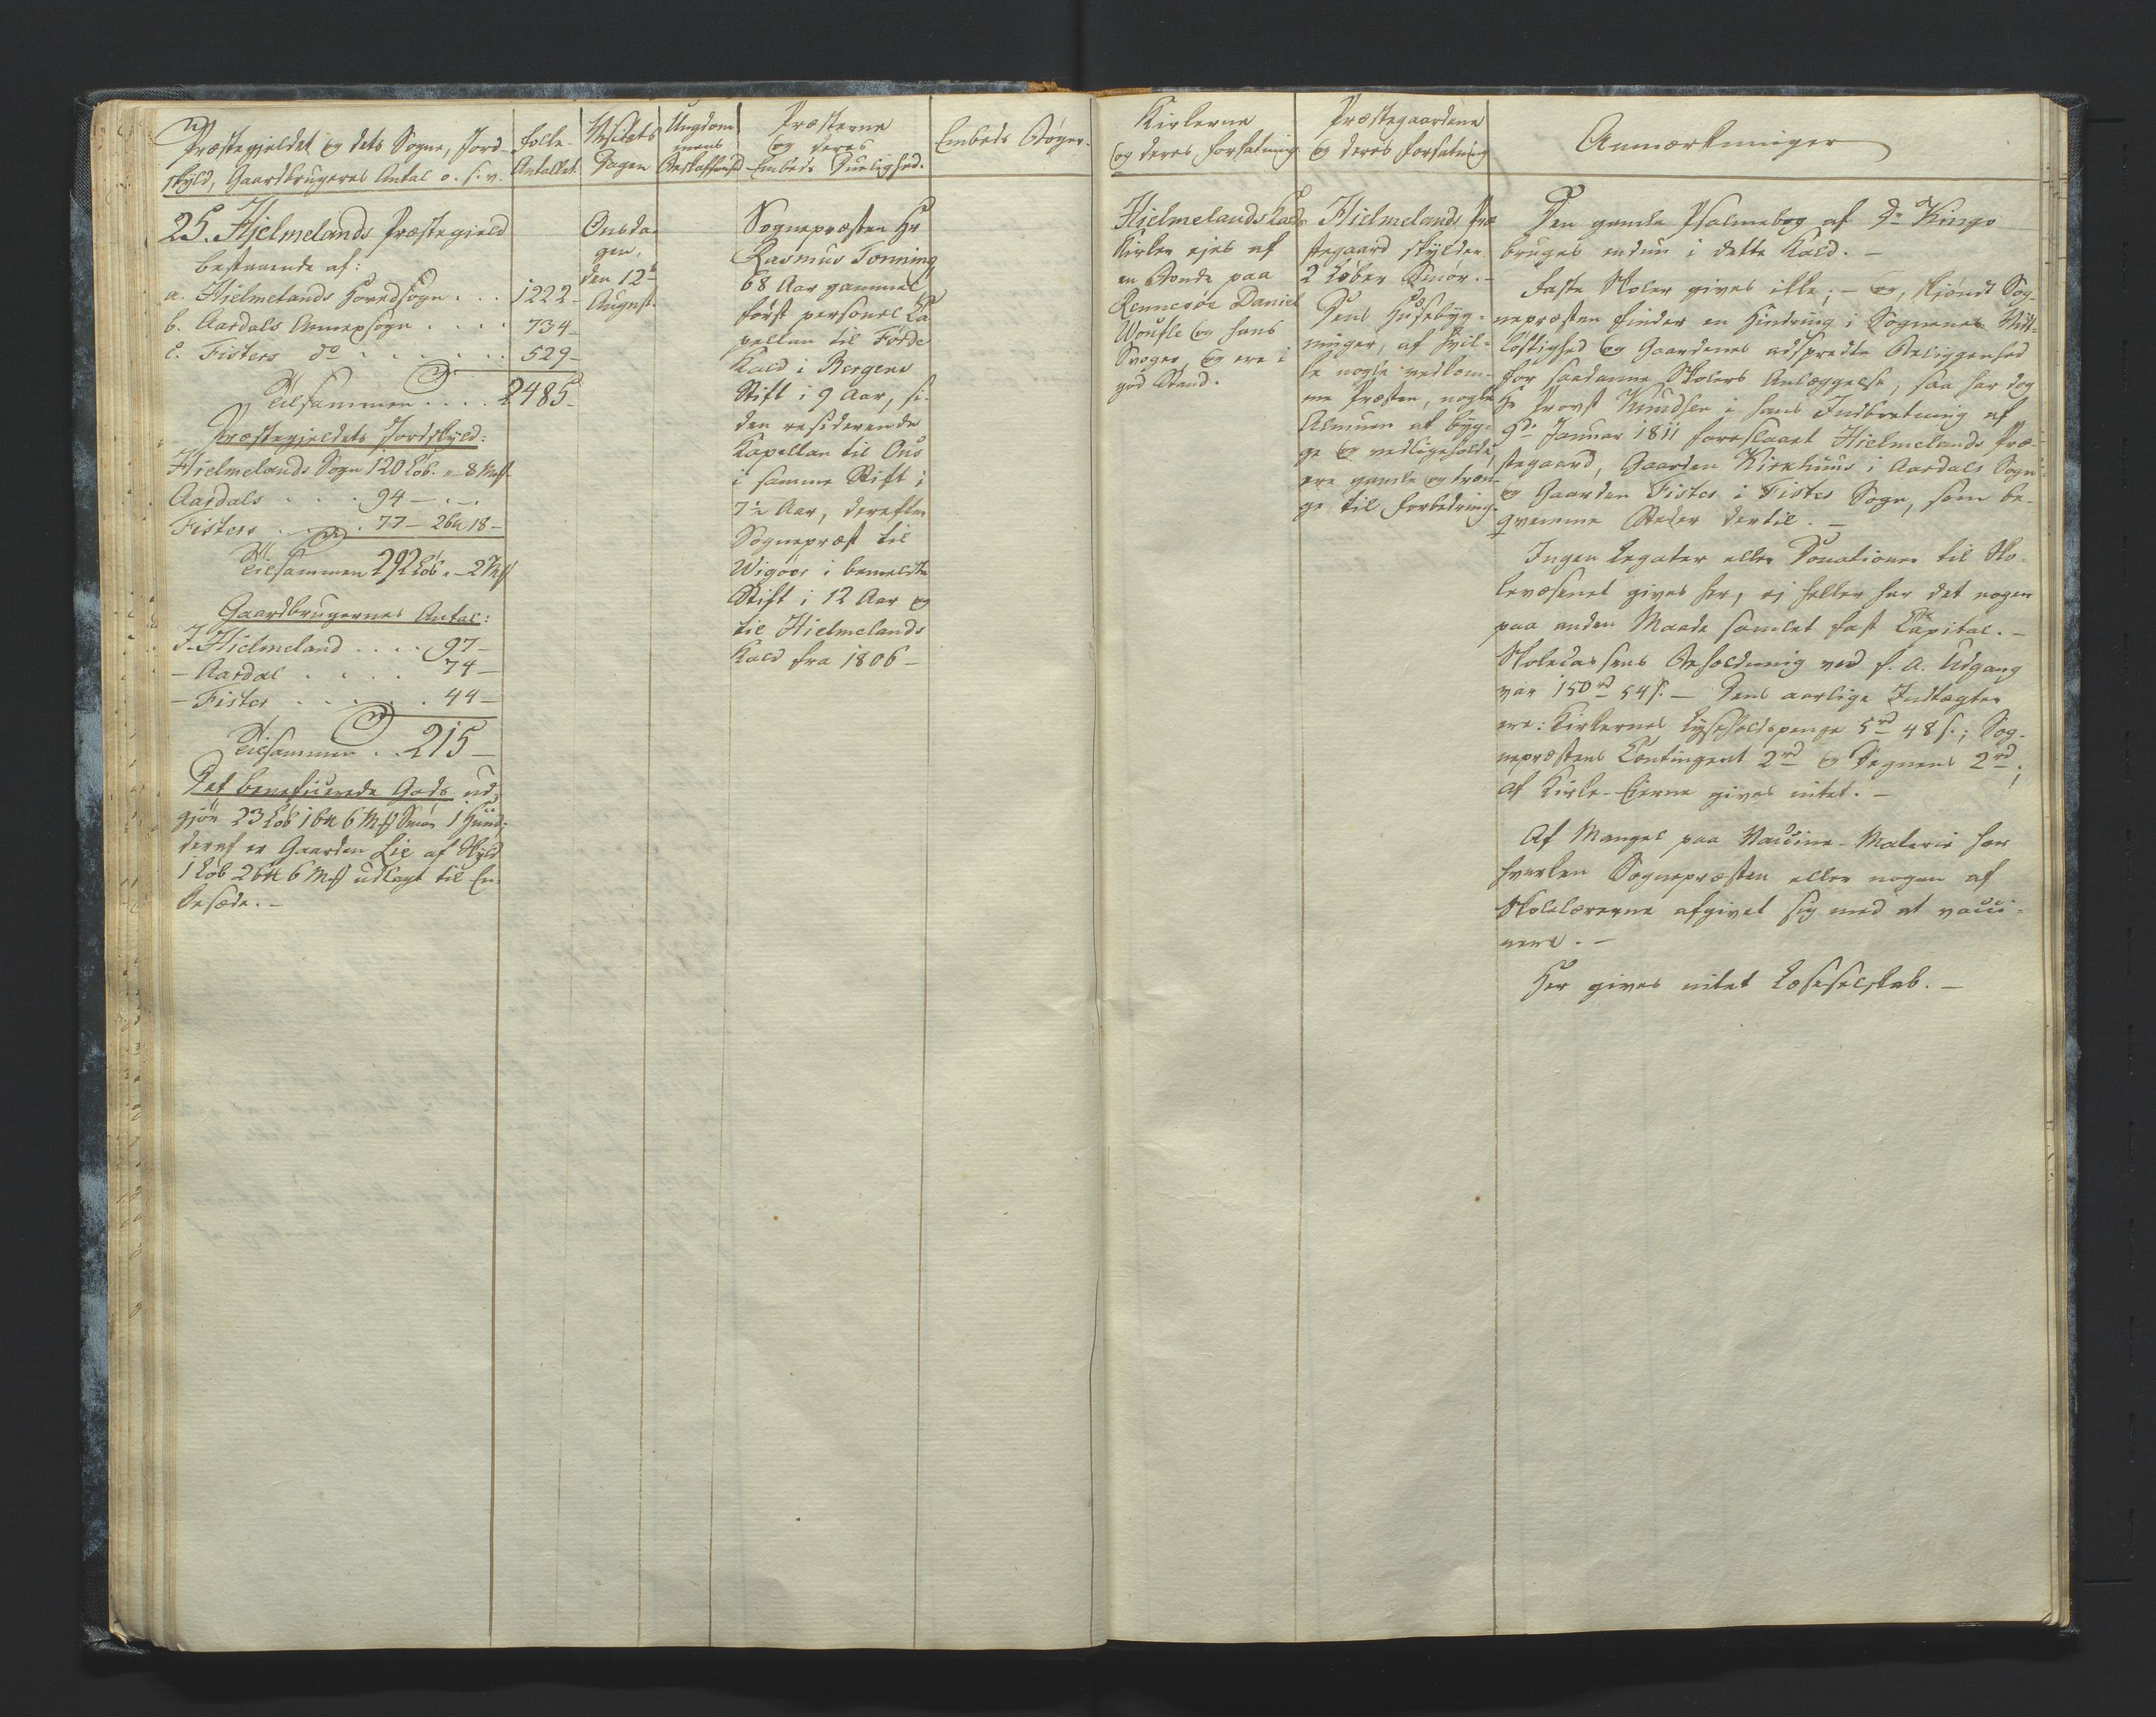 Præstegjeldet og dets Sogne, Jord-
skyld, Gaardbrugeres Antal o. s. v.
Folke-
Antallet.
Visitats
Dagen
Ungdom-
mens
Beskaffenhed
Præsterne
og deres
Embeds Duelighed.
Embeds Bøger.
25. Hjelmelands Præstegield
bestaaende af:
a. Hielmelands Hovedsogn . . . 1222-
b. Aardals Annexsogn . . . . 734-
c. Fisters do . . . . . . 529-
Tilsammen . . . . 2485-
Præstegieldets Jordskyld:
Hielmelands Sogn 120 Løb. " - 8 Mk
Aardals . . . . 94 - " - "
Fisters . . . . 77 - 2 bk 18 -
Tilsammen 292 Løb " - 2 Mk
Gaardbrugernes Antal:
I Hielmeland . . . . 97-
- Aardal . . . . . 74-
- Fister . . . . . . 44-
Tilsammen . . 215-
Det beneficerede Gods ud-
gjør 23 Løb 1 bk 6 Mk Smør 1 Hud;
deraf er Gaarden Lie af Skyld
1 Løb 2 bk 6 Mk udlagt til En-
kesæde. -
Onsda-
gen,
den 12te
August.
Sognepræsten Hr
Rasmus Tonning,
68 Aar gammel,
først personel Ca-
pellan til Førde
Kald i Bergens
Stift i 9 Aar, si-
den residerende
Kapellan til Ous
i samme Stift i
7½ Aar, derefter
Sognepræst til
Wigøer i bemeldte
Stift i 12 Aar og
til Hielmelands
Kald fra 1806 -
Kirkerne
og deres Forfatning
Hjelmelands Kalds
Kirker ejes af
en Bonde paa
Rennesøe Daniel
og hans
Svoger, og ere i
god Stand.
Præstegaardene
og deres Forfatning
Hielmelands Præ-
stegaard skylder
2 Løber Smør. -
Dens Husebyg-
ninger, af hvil-
ke nogle vedkom-
me Præsten, nogle
Almuen at byg-
ge og vedligeholde,
ere gamle og træn-
ge til Forbedring.
Anmærkninger
Den gamle Psalmebog af Dr Kingo
bruges endnu i dette Kald. -
Faste Skoler gives ikke; - og, skjøndt Sog-
nepræsten finder en Hindring i Sognenes Vidt-
løftighed og Gaardenes adspredte Beliggenhed
for saadanne Skolers Anlæggelse, saa har dog
Hr Provst Knudsen i hans Indberetning af
9de Januar 1811 foreslaaet Hielmelands Præ-
stegaard, Gaarden Kirkhuus i Aardals Sogn
og Gaarden Fister i Fister Sogn, som be-
qvemme Steder dertil. -
Ingen Legater eller Donationer til Sko-
levæsenet gives her, ej heller har det nogen
paa anden Maade samlet fast Capital. -
Skolecassens Beholdning ved f. A. Udgang
var 150 rd 54 s. - Dens aarlige Indtægter
ere: Kirkernes Lyseholdspenge 5 rd 48 s.; Sog-
nepræstens Contingent 2 rd og Degnens 2 rd;
af Kirke-Eierne gives intet. -
Af Mangel paa Vaccine-Materie har
hverken Sognepræsten eller nogen af
Skolelærerne afgivet sig med at vacci-
nere. -
Her gives intet Læseselskab. -